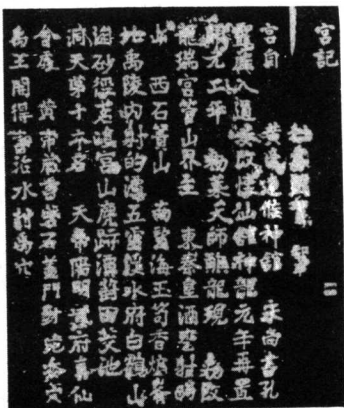 宮記
宮自 黃帝建候神館 宋尚書孔
靈產入道奏改懷仙館神龍元年再置
開元二年 敕葉天師醮龍現 敕改
龍瑞宮管山界至 東秦皇酒甕射的
山 西石簣山 南望海玉笥香爐峯
北禹陵內射的潭五雲溪水府白鶴山
淘砂徑茗塢宮山鹿跡潭葑田茭池
洞天第十本名 天帝陽明紫府真仙
會處 黃帝藏書磐石蓋門封宛委穴
禹至開得書治水封禹穴